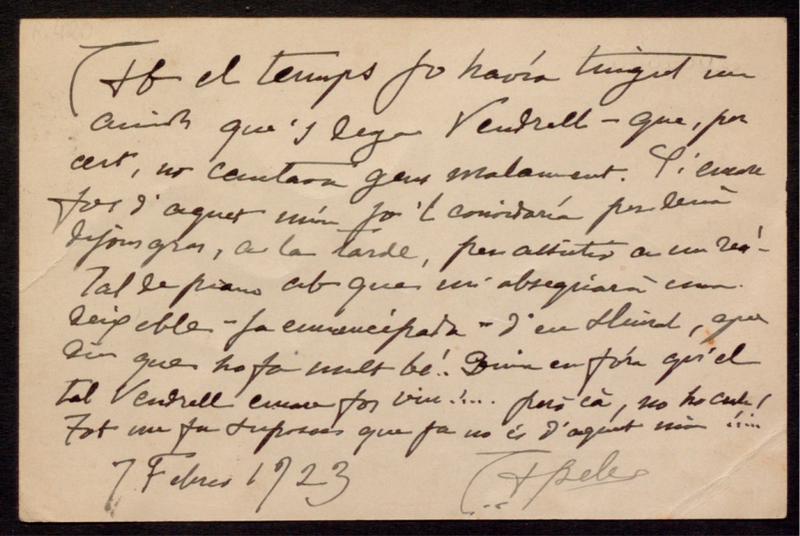 Ab el temps jo havía tingut un
amich que's deya Vendrell - que, per
cert, no cantava gens malament. Si encare
fos d'aquet món jo'l convidaría per demà
dijous gras, a la tarde, per assistir a un reci-
tal de piano ab que m'obsequiarà una
deixeble - ja emancipada - d'en Llurat, que
diu que ho fa molt bé!. Bona en fóra qu'el
tal Vendrell encare fos viu!... però cà, no ho crech!
Tot me fa suposar que ja no és d'aquet món!...
7 Febrer 1923